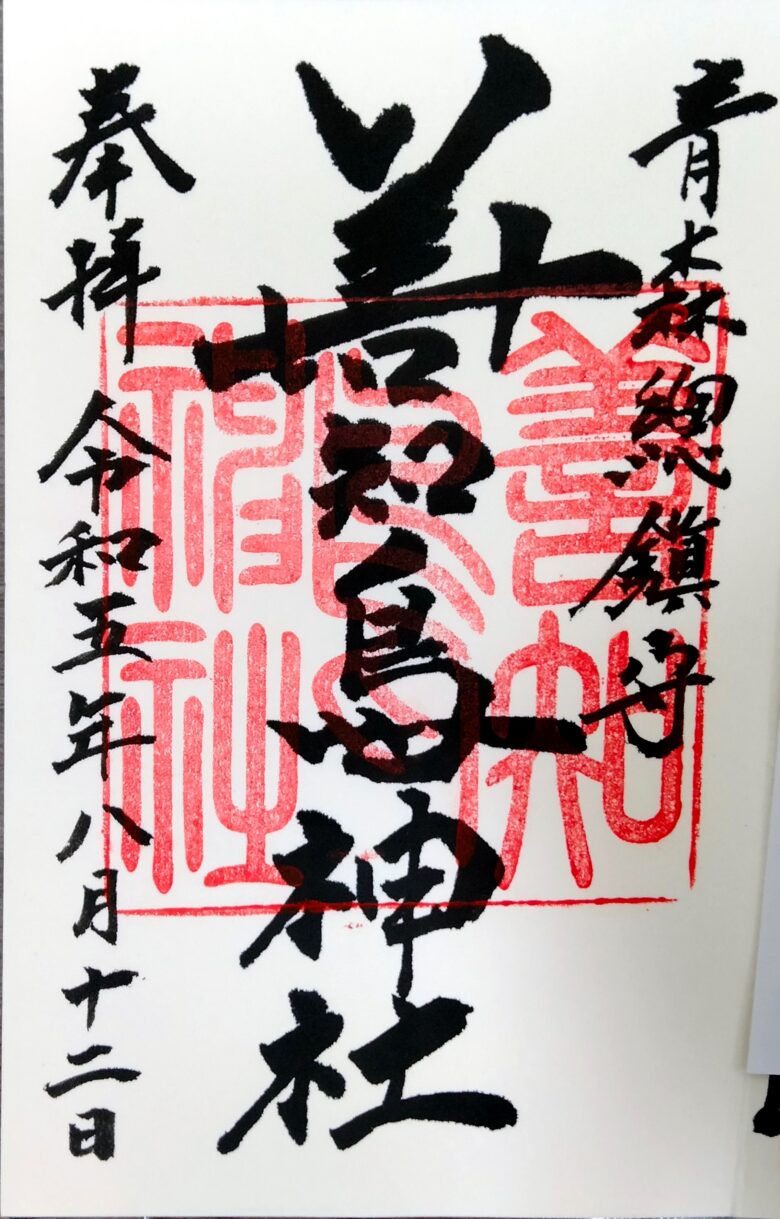 青森總鎮守
善知鳥神社
奉拝 令和五年八月十二日
善知鳥神社